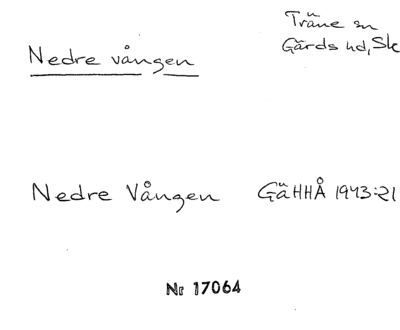 Träne sn
Gärds hd, Sk
Nedre vången
Nedre Vången GäHHÅ 1943:21
Nr 17064